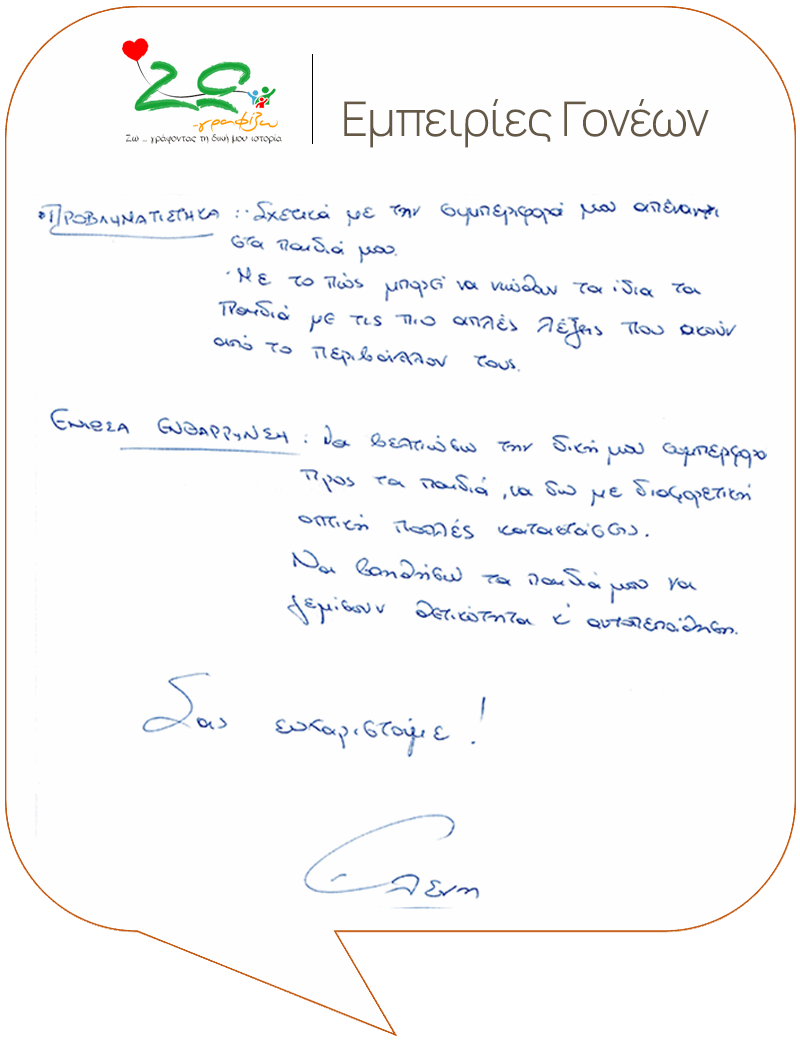 ΖΩ
...γραφίζω
Ζω ... γράφοντας τη δική μου ιστορία
Εμπειρίες Γονέων
•ΠΡΟΒΛΗΜΑΤΙΣΤΗΚΑ : · Σχετικά με την συμπεριφορά μου απέναντι
στα παιδιά μου.
· Με το πώς μπορεί να νιώθουν τα ίδια τα
παιδιά με τις πιο απλές λέξεις που ακούν
από το περιβάλλον τους.
ΕΝΙΩΣΑ ΕΝΘΑΡΡΥΝΣΗ : Να βελτιώσω την δική μου συμπεριφορα
προς τα παιδιά, να δω με διαφορετική
οπτική πολλές καταστάσεις.
Να βοηθήσω τα παιδιά μου να
γεμίσουν θετικότητα κ' αυτοπεποίθηση.
Σας ευχαριστούμε!
Ελένη